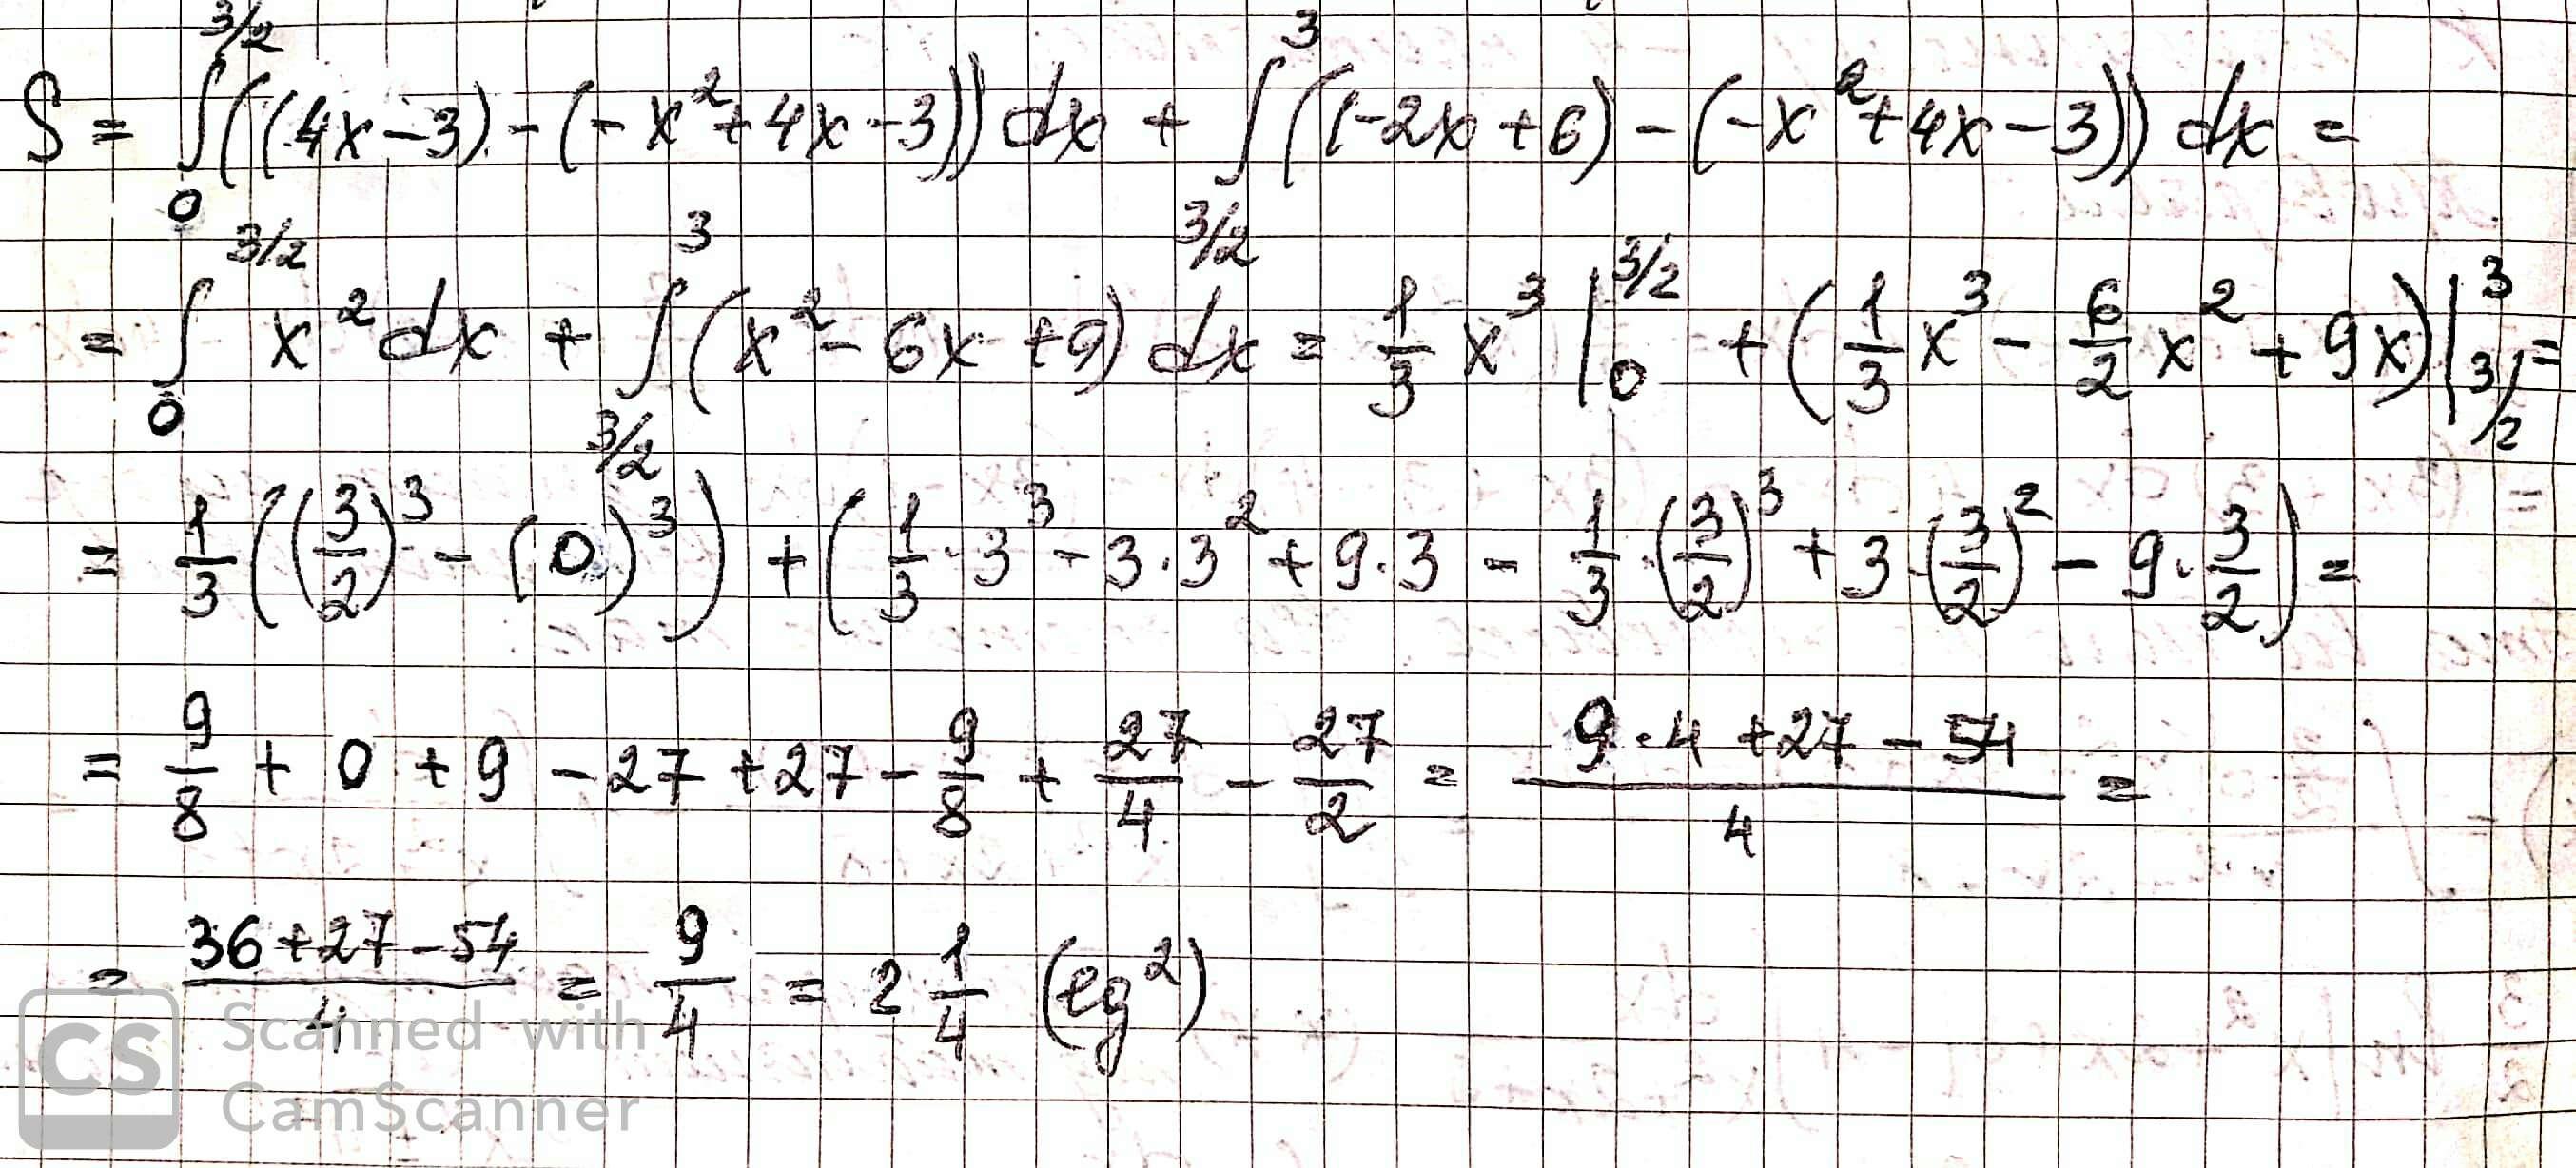 S = ∫₀^{3/2} ((4x-3) - (-x²+4x-3)) dx + ∫_{3/2}^3 ((-2x+6) - (-x²+4x-3)) dx =
= ∫₀^{3/2} x² dx + ∫_{3/2}^3 (x² - 6x + 9) dx = 1/3 x³ |₀^{3/2} + (1/3 x³ - 6/2 x² + 9x)|_{3/2}^3 =
= 1/3 ((3/2)³ - (0)³) + (1/3 · 3³ - 3 · 3² + 9 · 3 - 1/3 · (3/2)³ + 3 · (3/2)² - 9 · 3/2) =
= 9/8 + 0 + 9 - 27 + 27 - 9/8 + 27/4 - 27/2 = (9·4 + 27 - 54)/4 =
= (36 + 27 - 54)/4 = 9/4 = 2 1/4
CS Scanned with
CamScanner